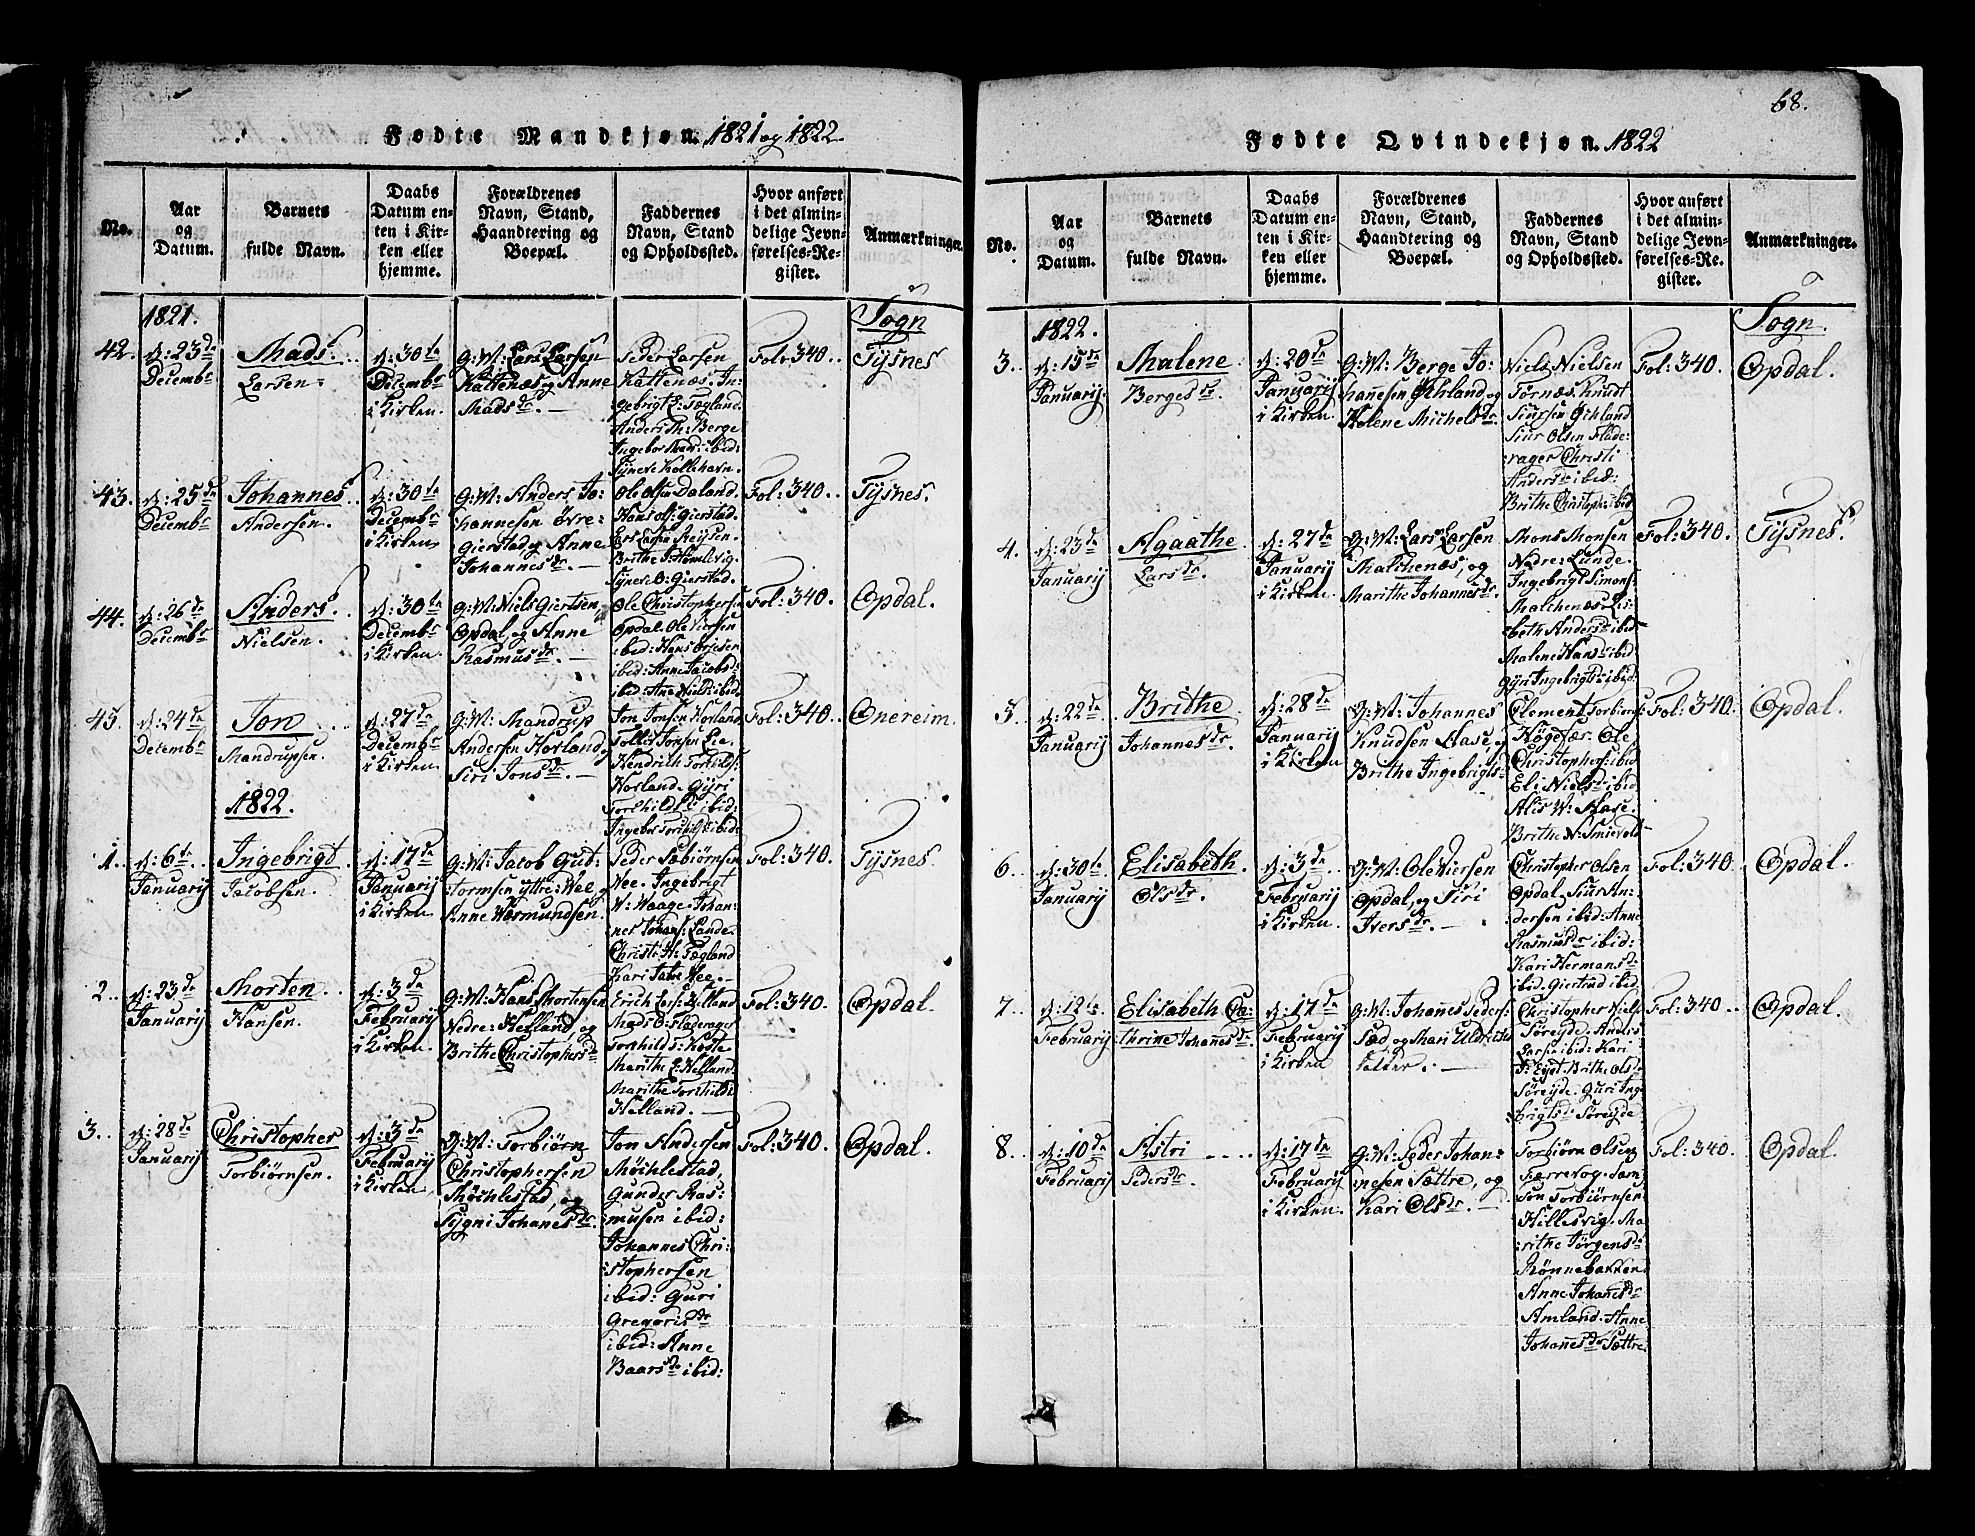 Fødte Mandkjøn. 1821 og 1822.
No.
Aar og Datum.
Barnets fulde Navn.
Daabs Datum enten i Kirken eller hjemme.
Forældrenes Navn, Stand, Haandtering og Boepæl.
Faddernes Navn, Stand og Opholdssted.
Hvor anført i det almindelige Jevnførelses-Register.
Anmærkninger.
1821.
Sogn
42.
d: 23de
Decembr
Mads
Larsen
d: 30te
Decembr
i Kirken.
G: M: Lars Larsen
Kattenæs og Anne
Madsdr. —
Peder Larsen
Kattenæs. In-
gebrigt L: Tegland.
Ingebor Mads: ibid:
Syneve Kollehavn.
Fol: 340.
Tysnes
43.
d: 25de
Decembr
Johannes
Andersen.
d: 30te
Decembr
i Kirken
G: M: Anders Jo-
hannesen Øvre-
Gierstad og Anne
Johannesdr. —
Ole Olsen Daland.
Hans Ols: Gierstad.
Lars Larsen
Synev: O: Gierstad.
Fol: 340.
Tysnes.
44.
d: 26de
Decembr
Anders
Nielsen.
d: 30te
Decembr
i Kirken.
G: M: Niels Giertsen,
Opdal, og Anne
Rasmusdr. —
Ole Christophersen
Opdal. Ole Iversen
ibid: Hans
ibid: Anne Jacobsd:
ibid: Ane Nielsd: ibid.
Fol: 340.
Opdal.
45.
d: 24de
Decembr
Jon
Mandrupsen.
d: 27de
Decembr
i Kirken
G: M: Mandrup
Andersen Horland, og
Siri Jonsdr. —
Jon Jonsen Horland
Hendrith Torkilds:
Horland. Gyri
Torkildsdr ibid:
Ingebor Torkilds: ibid:
Fol: 340.
Onereim.
1822.
1.
d: 6te
Januarij
Ingebrigt
Jacobsen.
d: 17de
Januarij
i Kirken
G: M: Jacob Gut-
tormsen Yttre: Vee, og
Anne Wermundsen.
Peder Sæbiørnsen
Vee. Ingebrigt
W: Waage. Johan-
nes Johans: Lande.
Christi H: Tegland
Fol: 340.
Tysnes.
2.
d: 23de
Januarij
Morten
Hansen.
d: 3de
Februarij
i Kirken.
G: M: Hans Mortensen
Nedre: Helland, og
Brithe Christophersdr
Erich Lars: Helland
Mads O: Fladerager
Marithe E: Helland.
Marithe Torkilds:
Helland. —
Fol: 340.
Opdal.
3.
d: 28de
Januarij
Christopher
Torbiørnsen.
d: 3de
Februarij
i Kirken.
G: M: Torbiørn
Christophersen
Møchlestad, og
Sygni Johanesdr.
Jon Andersen
Møchlestad,
Gunder Ras-
musen ibid:
Johannes Chri-
stophersen
ibid: Guri
Gregorisdr
ibid: Anne
Baarsdr ibid:
Fol: 340.
Opdal.
68.
Fødte Qvindekjøn. 1822
No.
Aar og Datum.
Barnets fulde Navn.
Daabs Datum enten i Kirken eller hjemme.
Forældrenes Navn, Stand, Haandtering og Boepæl.
Faddernes Navn, Stand og Opholdssted.
Hvor anført i det almindelige Jevnførelses-Register.
Anmærkninger.
1822.
Sogn.
3.
d: 15de
Januarij.
Malene
Bergesdr.
d: 20de
Januarij
i Kirken.
G: M: Berge Jo-
hannesen Øhrland, og
Helene Michelsdr.
Niels Nielsen
Tornæs. Knudt
Siursen Øhrland
Siur Olsen Flade-
rager Christi
Andersdr ibid:
Brithe Christoph: ibid
Fol: 340.
Opdal.
4.
d: 23de
Januarij
Agaathe
Larsdr.
d: 27de
Januarij
i Kirken.
G: M: Lars Larsen
Malchenæs, og
Marithe Johannesdr
Mons Monsen
Nedre: Lunde.
Ingebrigt Simons:
Malchenæs. Lis-
beth Andersdr ibid
Malene Hansdr ibid:
Gyri Ingebrigtsdr ibid.
Fol: 340.
Tysnes.
5.
d: 22de
Januarij
Brithe
Johannesdr.
d: 28de
Januarij
i Kirken
G: M: Johannes
Knudsen Aase, og
Brithe Ingebrigts-
Clement Torbiørns:
Høgefær. Ole
Christophers: ibid
Eli Nielsdr ibid
Alis W: Aase.
Brithe N: Smievold
Fol: 340.
Opdal.
6.
d: 30te
Januarij
Elisabeth
Olsdr.
d: 3de
Februarij
i Kirken.
G: M: Ole Iversen
Opdal, og Siri
Iversdr. —
Christopher Olsen
Opdal. Siur An-
dersen ibid: Anne
Rasmusdr ibid:
Kari Hermansdr
ibid. Giertrud ibid.
Fol: 340
Opdal.
7.
d: 12te
Februarij
Elisabeth Ca-
thrine Johanesdr
d: 17de
Februarij
i Kirken
G: M: Johanes Peders:
Sæd, og Mari Uldrichs
Christopher Niels:
Søreyde. Anders
Larsen ibid: Kari
Brithe Olsdr
Søreyde. Guri Inge-
brigtsdr Søreyde
Fol: 340.
Opdal.
8.
d: 10de
Februarij
Astri
Pedersdr.
d: 17de
Februarij
i Kirken.
G: M: Peder Johan-
nesen Sættre, og
Kari Olsdr. —
Torbiørn Olsen
Færrevog. Sam-
son Torbiørnsen
Hillesvig. Ma-
rithe Jørgensdr
Mønnebakken.
Anne Johanesdr
Amland. Anne
Johanesdr Sættre.
Fol: 340.
Opdal.